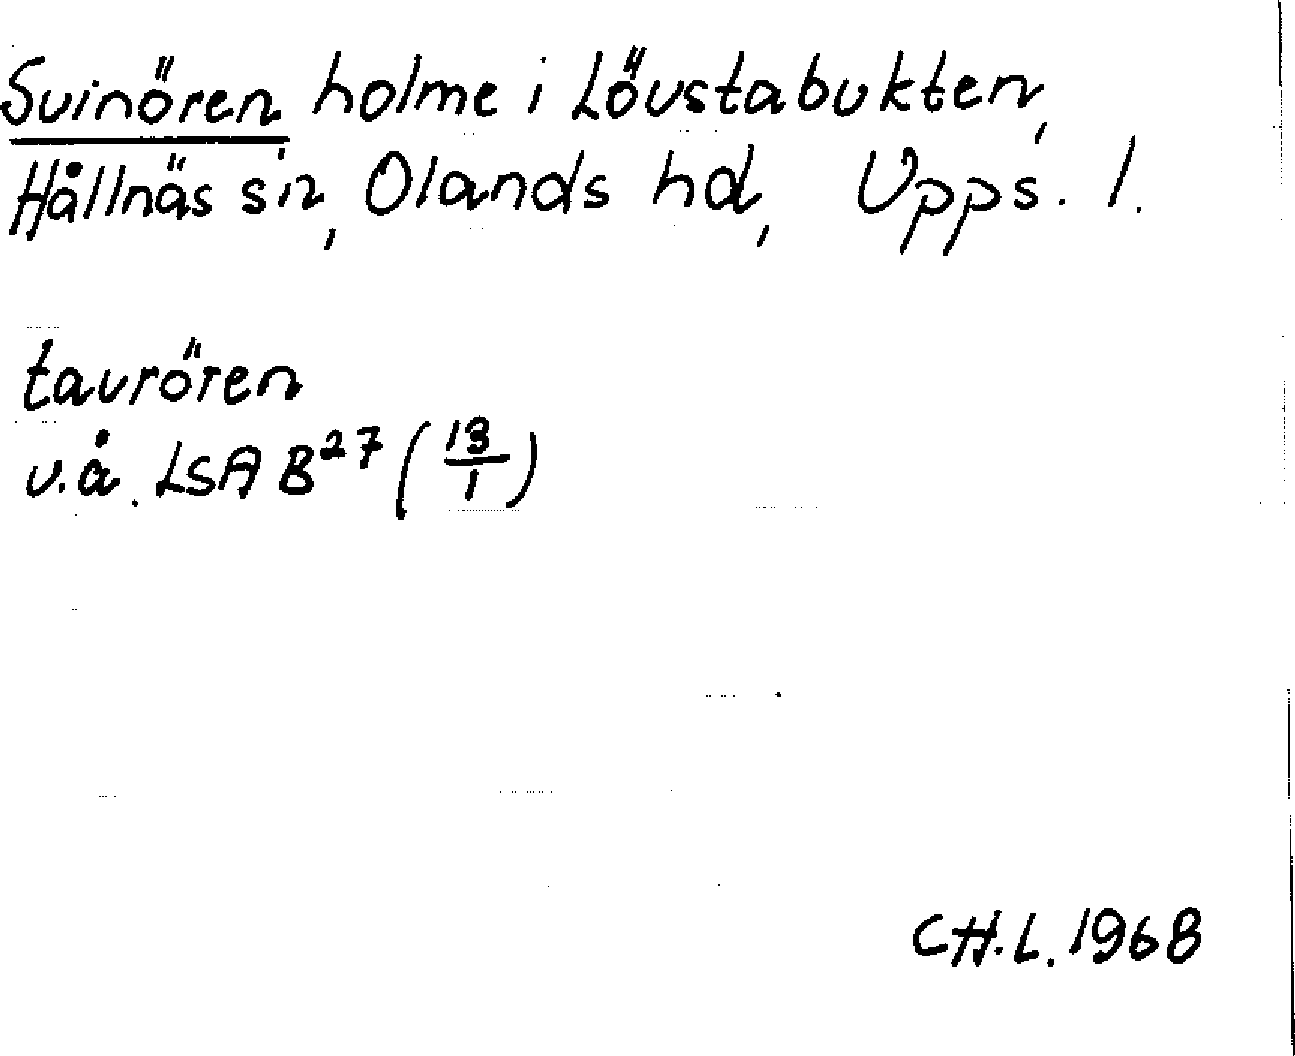 Svinören holme i Lövstabukten,
Hållnäs sn, Olands hd, Upps. l.
taurören
u.å. LSA B27 (13/1)
CH.L. 1968